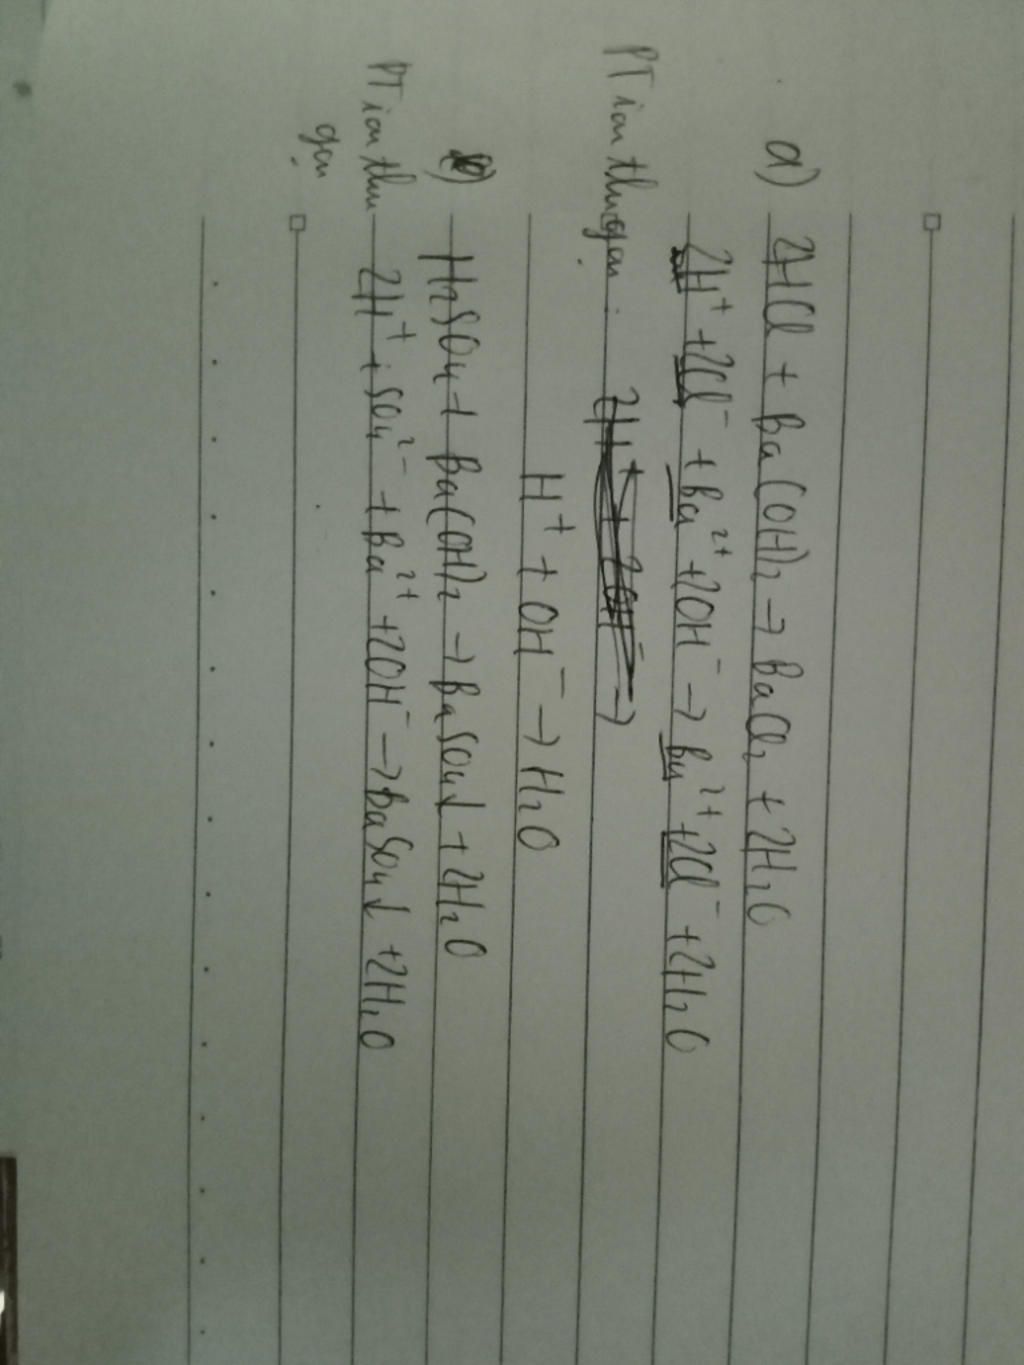 a) 2HCl + Ba(OH)₂ → BaCl₂ + 2H₂O
2H⁺ + 2Cl⁻ + Ba²⁺ + 2OH⁻ → Ba²⁺ + 2Cl⁻ + 2H₂O
PT ion thu gọn : 2H⁺ + 2OH⁻ →
H⁺ + OH⁻ → H₂O
H₂SO₄ + Ba(OH)₂ → BaSO₄↓ + 2H₂O
PT ion thu 2H⁺ + SO₄²⁻ + Ba²⁺ + 2OH⁻ → BaSO₄↓ + 2H₂O
gọn